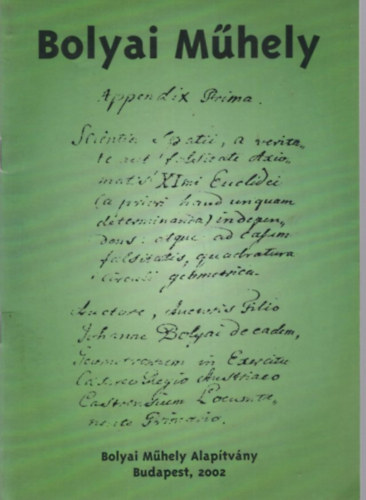 Bolyai Műhely
Appendix Prima.
Scientia Spatii, a verita-
te aut falsitate Axio-
matis XImi Euclidei
(a priori haud unquam
determinanda) indepen-
dens: atque ad casum
falsitatis, quadratura
circuli geometrica.
Auctore, Auctoris Filio
Johanne Bolyai de eadem,
in Exercitu
Caesareo Regio Austriaco
Castrensium Locumte-
nente Primario.
Bolyai Műhely Alapítvány
Budapest, 2002